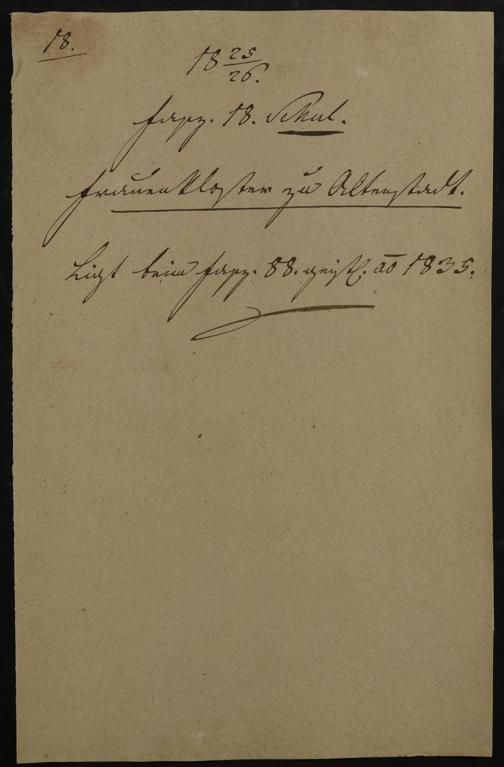 18.
18 25/26.
Fasz. 18. Schul.
Frauenkloster zu Altenstadt.
Ligt beim Fasz. 88. geistl. ao 1835.